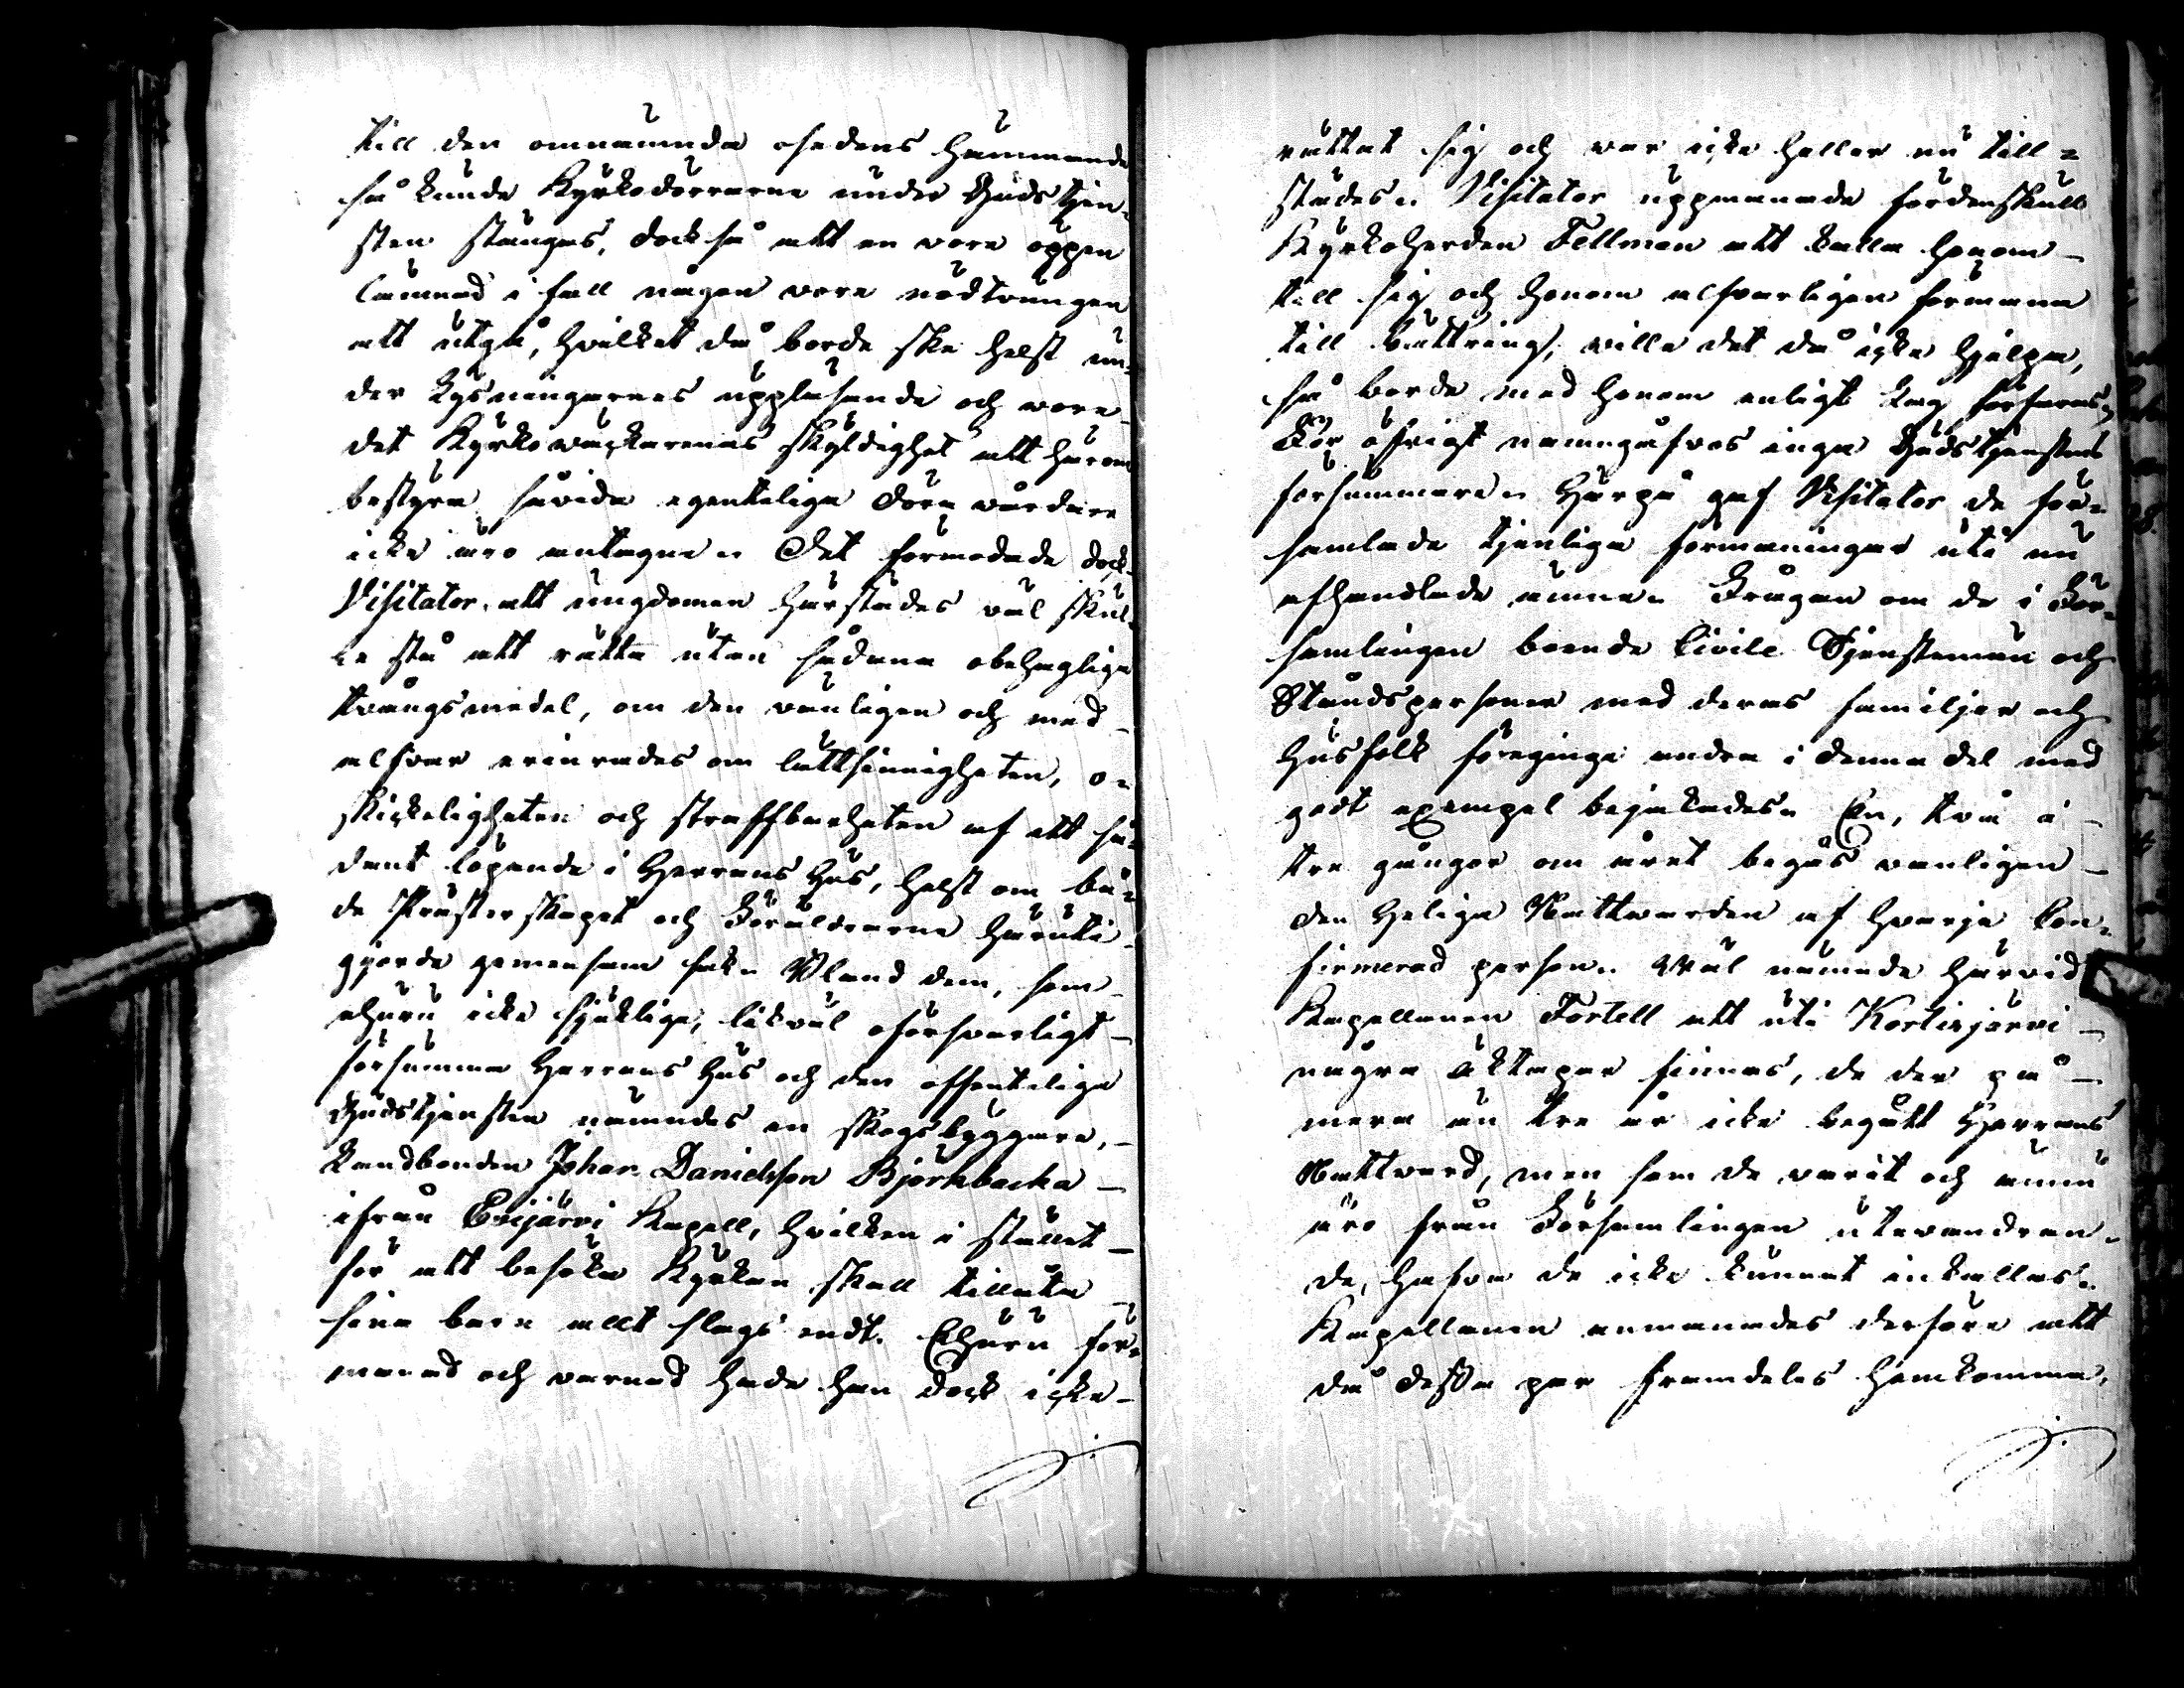 till den omnämnda osedens hämmande
så kunde Kyrkodörrarne under Gudstjen=
sten stängas, dock så att en vore öppen
lämnad i fall någon vore nödtvungen
att utgå, hvilket då borde ske helst un=
der Lysningarnes uppläsande och vore
det Kyrkowäckarenas skyldighet att härom
bestyra såvida egentelige Döra vårdare
icke äro antagne. Det förmodade dock
Visitator, att ungdomen härstädes väl skul=
le stå att rätta utan sådana obehaglige
tvångsmedel, om den vänligen och med
alfvar erinrades om lättsinnigheten, o=
skickeligheten och straffbarheten af ett så=
dant löpande i Herrans Hus, helst om bå=
de Prästerskapet och Föräldrarne häruti
gjorde gemensam sak. Bland dem, som
ehuru icke sjuklige, likväl oförsvarligt
försumma Herrans Hus och den offentelige
Gudstjensten nämndes en skogsbyggare,
Landbonden Johan Danielsson Björkbacka
ifrån Evijärvi Kapell, hvilken i stället
för att besöka Kyrkan skall tillåta
sina barn allt slags ondt. Ehuru för=
manad och varnad hade han dock icke
rättat sig och var icke heller nu till=
städes. Visitator uppmanade fördenskull
Kyrkoherden Fellman att kalla honom
till sig och honom alfvarligen förmana
till bättring, ville det då icke hjelpa,
så borde med honom enligt Lag förfaras.
För öfrigt namngåfvos inga Gudstjenstens
försummare. Härpå gaf Visitator de för=
samlade tjenliga förmaningar uti nu
afhandlade ämne. Frågan om de i För=
samlingen boende Civile Tjenstemän och
Ståndspersoner med deras familjer och
husfolk föreginge andra i denna del med
godt exempel bejakades. En, två à
tre gånger om året begås vanligen
den Heliga Nattvarden af hvarje Con=
firmerad person. Wäl nämnde härvid
Kapellanen Fortell att uti Kortesjärvi
några äktapar finnas, de der på
mera än tre år icke begått Herrans
Nattvard, men som de varit och ännu
äro från Församlingen utevandran=
de, hafva de icke kunnat inkallas.
Kapellanen anmanades derföre att
då dessa par framdeles hemkomma,